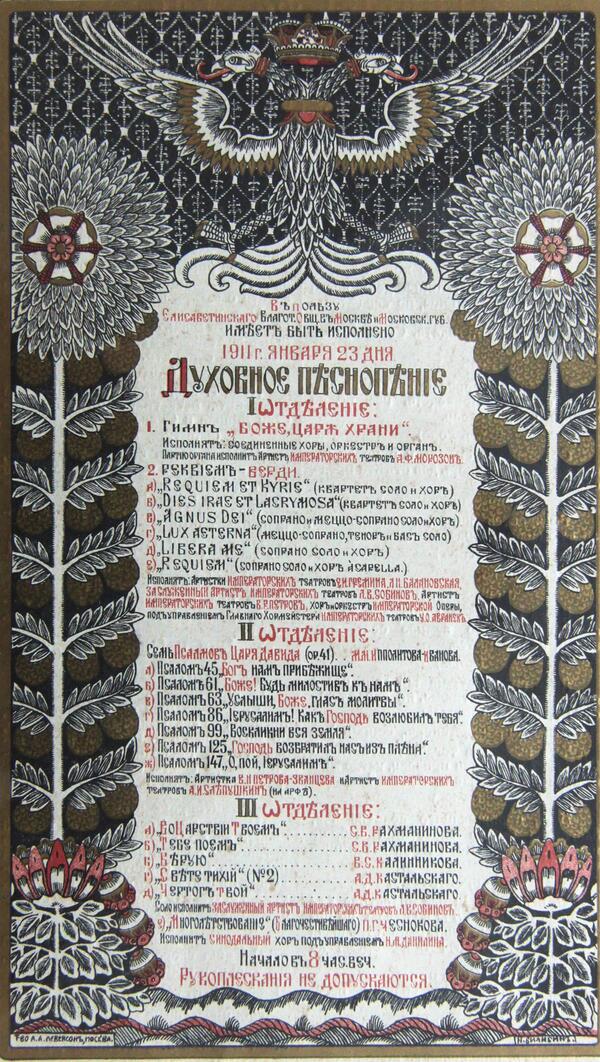 Въ пользу
Елисаветинскаго Благот. Общ. въ Москвѣ и Московск. губ.
имѣетъ быть исполнено
1911 г. января 23 дня
Духовное пѣснопѣніе
I Ѡтдѣленіе:
1. Гимнъ „Боже, Царя храни“.
Исполнятъ: соединенные хоры, оркестръ и органъ.
Партію органа исполнитъ артистъ Императорскихъ театровъ А.Ф. Морозовъ.
2. Реквіемъ - Верди.
а) „Requiem et Kyrie“ (квартетъ соло и хоръ)
б) „Dies irae et Lacrymosa“ (квартетъ соло и хоръ)
в) „Agnus Dei“ (сопрано и меццо-сопрано соло и хоръ)
г) „Lux aeterna“ (меццо-сопрано, теноръ и басъ соло)
д) „Libera me“ (сопрано соло и хоръ)
е) „Requiem“ (сопрано соло и хоръ à capella.)
Исполнятъ: Артистки Императорскихъ театровъ Л.Н. Балановская,
заслуженный артистъ Императорскихъ театровъ Л.В. Собиновъ, Артистъ
Императорскихъ театровъ В.Р. Петровъ, хоръ и оркестръ Императорской Оперы,
подъ управленіемъ Главнаго Хормейстера Императорскихъ театровъ У.О. Авранекъ
II Ѡтдѣленіе:
Семь Псалмовъ Царя Давида (ор. 41) . . М.М. Ипполитова-Иванова.
а) Псаломъ 45 „Богъ намъ прибѣжище“.
б) Псаломъ 61 „Боже! Будь милостивъ къ намъ“.
в) Псаломъ 63 „Услыши, Боже, гласъ молитвы“.
г) Псаломъ 86 „Іерусалимъ! Какъ Господь возлюбилъ тебя“.
д) Псаломъ 99 „Воскликни вся земля“.
е) Псаломъ 125 „Господь возвратилъ насъ изъ плѣна“.
ж) Псаломъ 147 „О, пой, Іерусалимъ“.
Исполнятъ: Артистка В.Н. Петрова-Званцева и Артистъ Императорскихъ
театровъ А.И. Слѣпушкинъ (на арфѣ).
III Ѡтдѣленіе:
а) „Во Царствіи Твоемъ“ . . . . . . . . . . С.В. Рахманинова.
б) „Тебе поемъ“ . . . . . . . . . . С.В. Рахманинова.
в) „Вѣрую“ . . . . . . . . . . В.С. Калинникова.
г) „Свѣте тихій“ (№2) . . . . . . . . . . А.Д. Кастальскаго.
д) „Чертогъ твой“ . . . . . . . . . . А.Д. Кастальскаго.
Соло исполнитъ заслуженный артистъ Императорскихъ театровъ Л.В. Собиновъ.
е) „Многолѣтствованіе“ (Благочестивѣйшаго) П.Г. Чеснокова.
Исполнитъ Синодальный хоръ подъ управленіемъ Н.М. Данилина.
Начало въ 8 час. веч.
Рукоплесканія не допускаются.
Т-во А.А. Левенсонъ, Москва.
И. Билибинъ